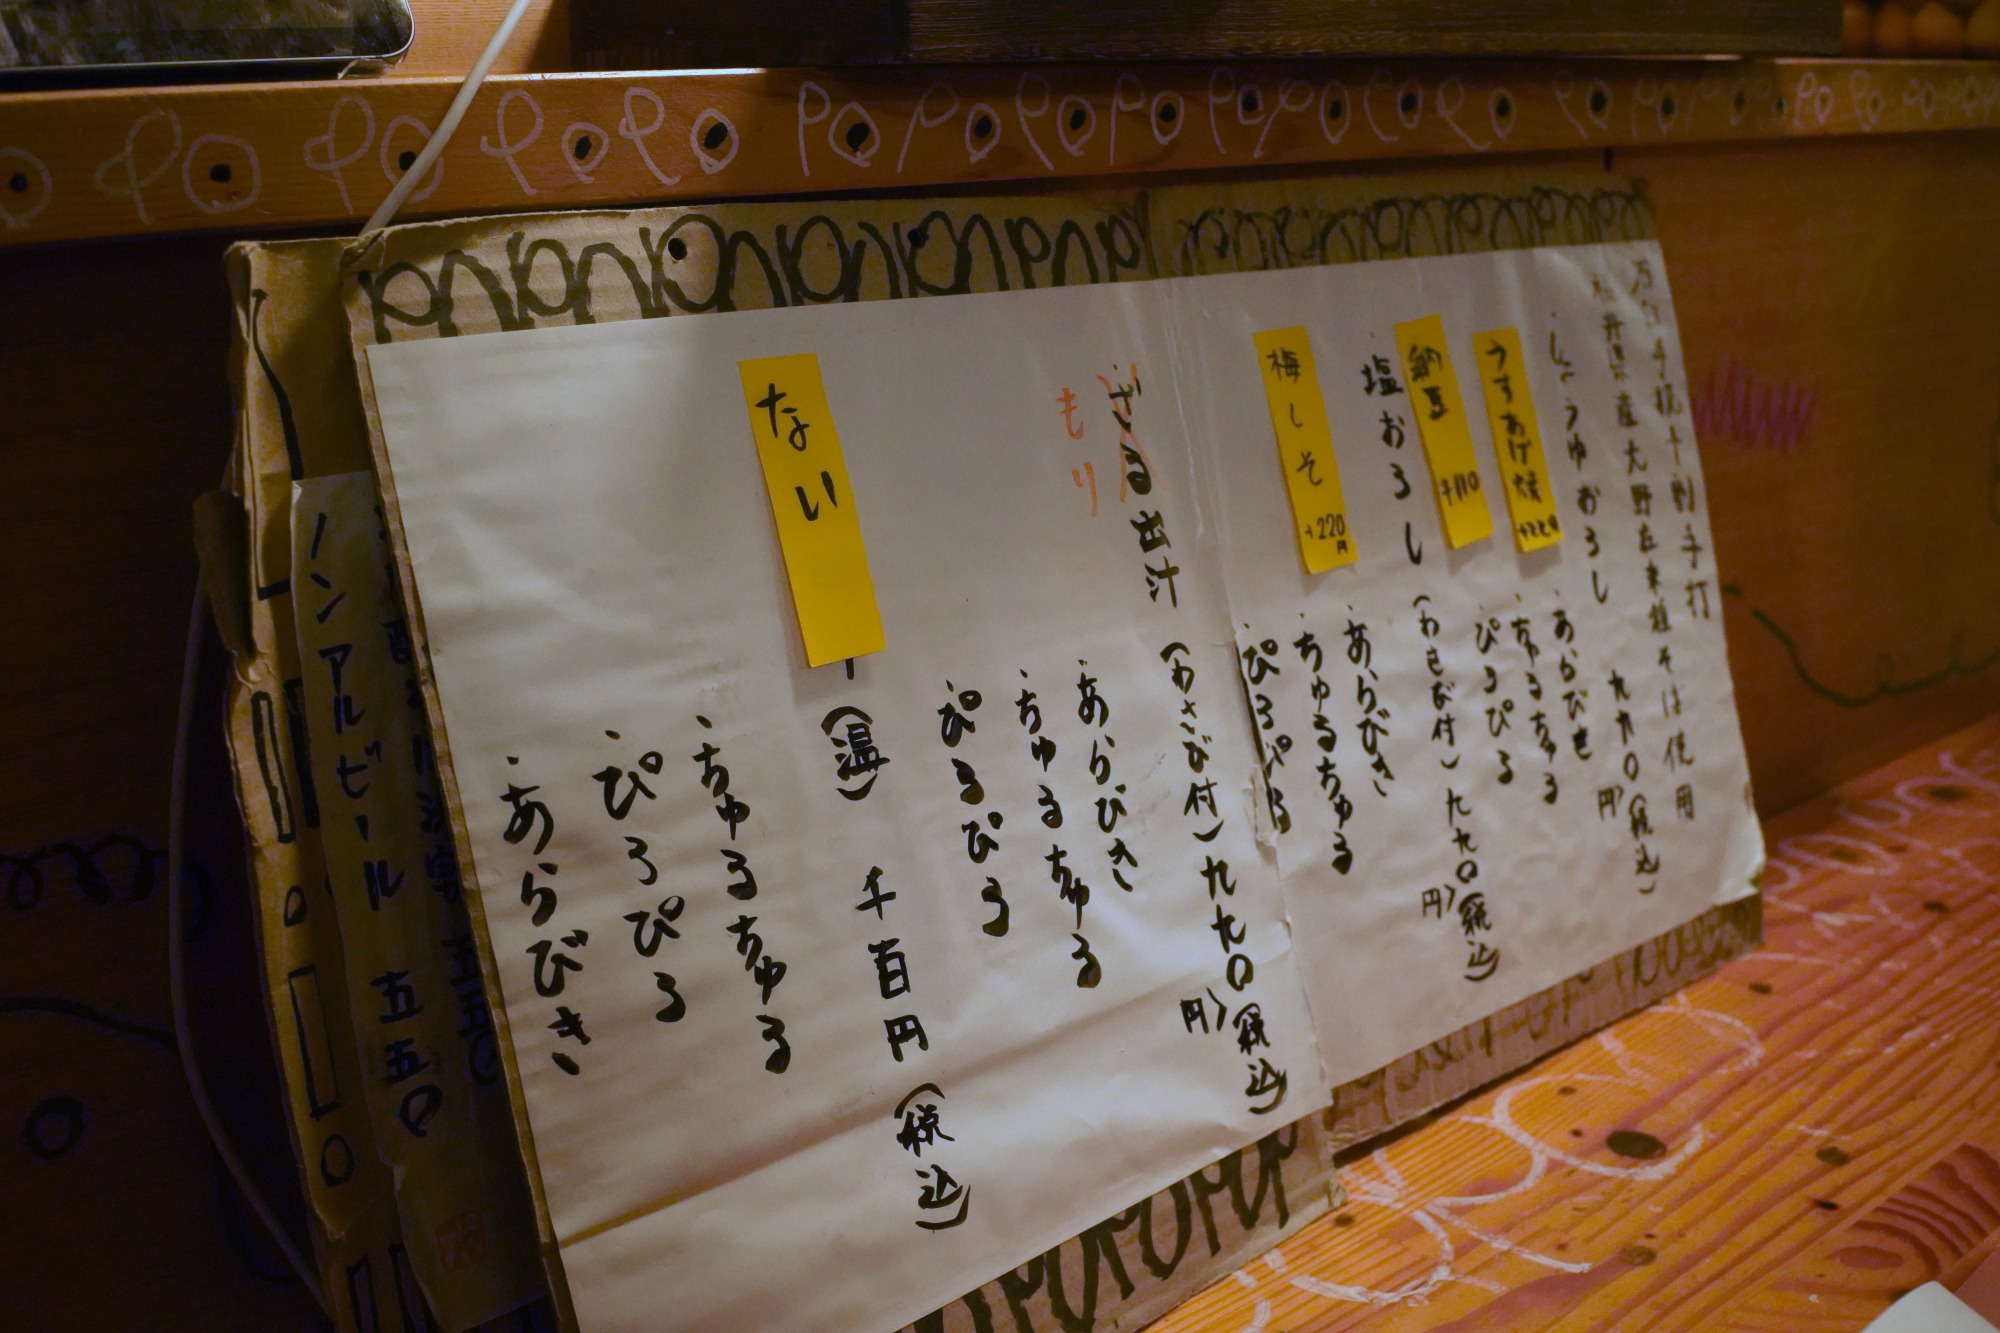 石臼手挽十割手打
福井県産大野在来種そば使用
・しょうゆおろし 九九〇円(税込)
・あらびき
・ちゅるちゅる
・ぴろぴる
うすあげ焼
納豆 +110
・塩おろし(わさび付)九九〇円(税込)
・あらびき
・ちゅるちゅる
・ぴろぴる
梅しそ +220円
・ざる出汁(わさび付)九九〇円(税込)
もり
・あらびき
・ちゅるちゅる
・ぴろぴる
ない
(温) 千百円(税込)
・ちゅるちゅる
・ぴろぴる
・あらびき
五五〇
ノンアルビール 五五〇